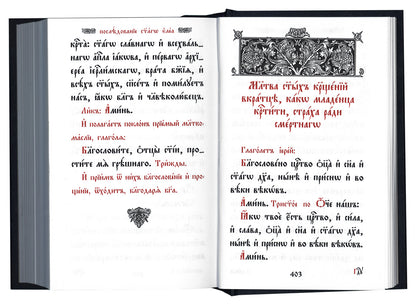 послѣдованїе ст҃агѡ є҆леа
кр҇та̀: ст҃а́гѡ сла́внагѡ и҆ всехва́ль-
нагѡ а҆пⷭ҇ла і҆а́кѡва, и҆ пе́рвагѡ а҆рхї-
ере́а і҆ерⷭ҇ли́мскагѡ, бра́та бж҃їѧ, и҆
всѣ́хъ ст҃ы́хъ, сп҃се́тъ и҆ поми́лꙋетъ
на́съ, ꙗ҆́кѡ бл҃гъ и҆ чл҃вѣколю́бецъ.
Ли́къ: А҆ми́нь.
И҆ полага́етъ покло́нъ прїе́мый мл҃тво-
ма́слїе, глаго́лѧ:
Благослови́те, ѻ҆тцы̀ ст҃і́и, про-
сти́те мѧ̀ грѣ́шнаго. Три́жды.
И҆ прїи́мъ ѿ ни́хъ благослове́нїе и҆ про-
ще́нїе, ѿхо́дитъ, благодарѧ̀ бг҃а.
Мл҃тва ст҃ы́хъ кр҃ще́нїй
вкра́тцѣ, ка́кѡ младе́нца
кр҇ти́ти, стра́ха ра́ди
сме́ртнагѡ
Глаго́летъ і҆ере́й:
Благослове́но цр҇тво ѻ҆ц҃а̀ и҆ сн҃а и҆
ст҃а́гѡ дх҃а, ны́нѣ и҆ при́снѡ и҆ во
вѣ́ки вѣкѡ́въ.
А҆ми́нь. Трист҃о́е по Ѻ҆́ч҃е на́шъ:
Ꙗ҆́кѡ твоѐ є҆́сть цр҇тво, и҆ си́ла,
и҆ сла́ва, ѻ҆ц҃а̀ и҆ сн҃а и҆ ст҃а́гѡ дх҃а,
ны́нѣ и҆ при́снѡ и҆ во вѣ́ки вѣкѡ́въ.
А҆ми́нь.
403